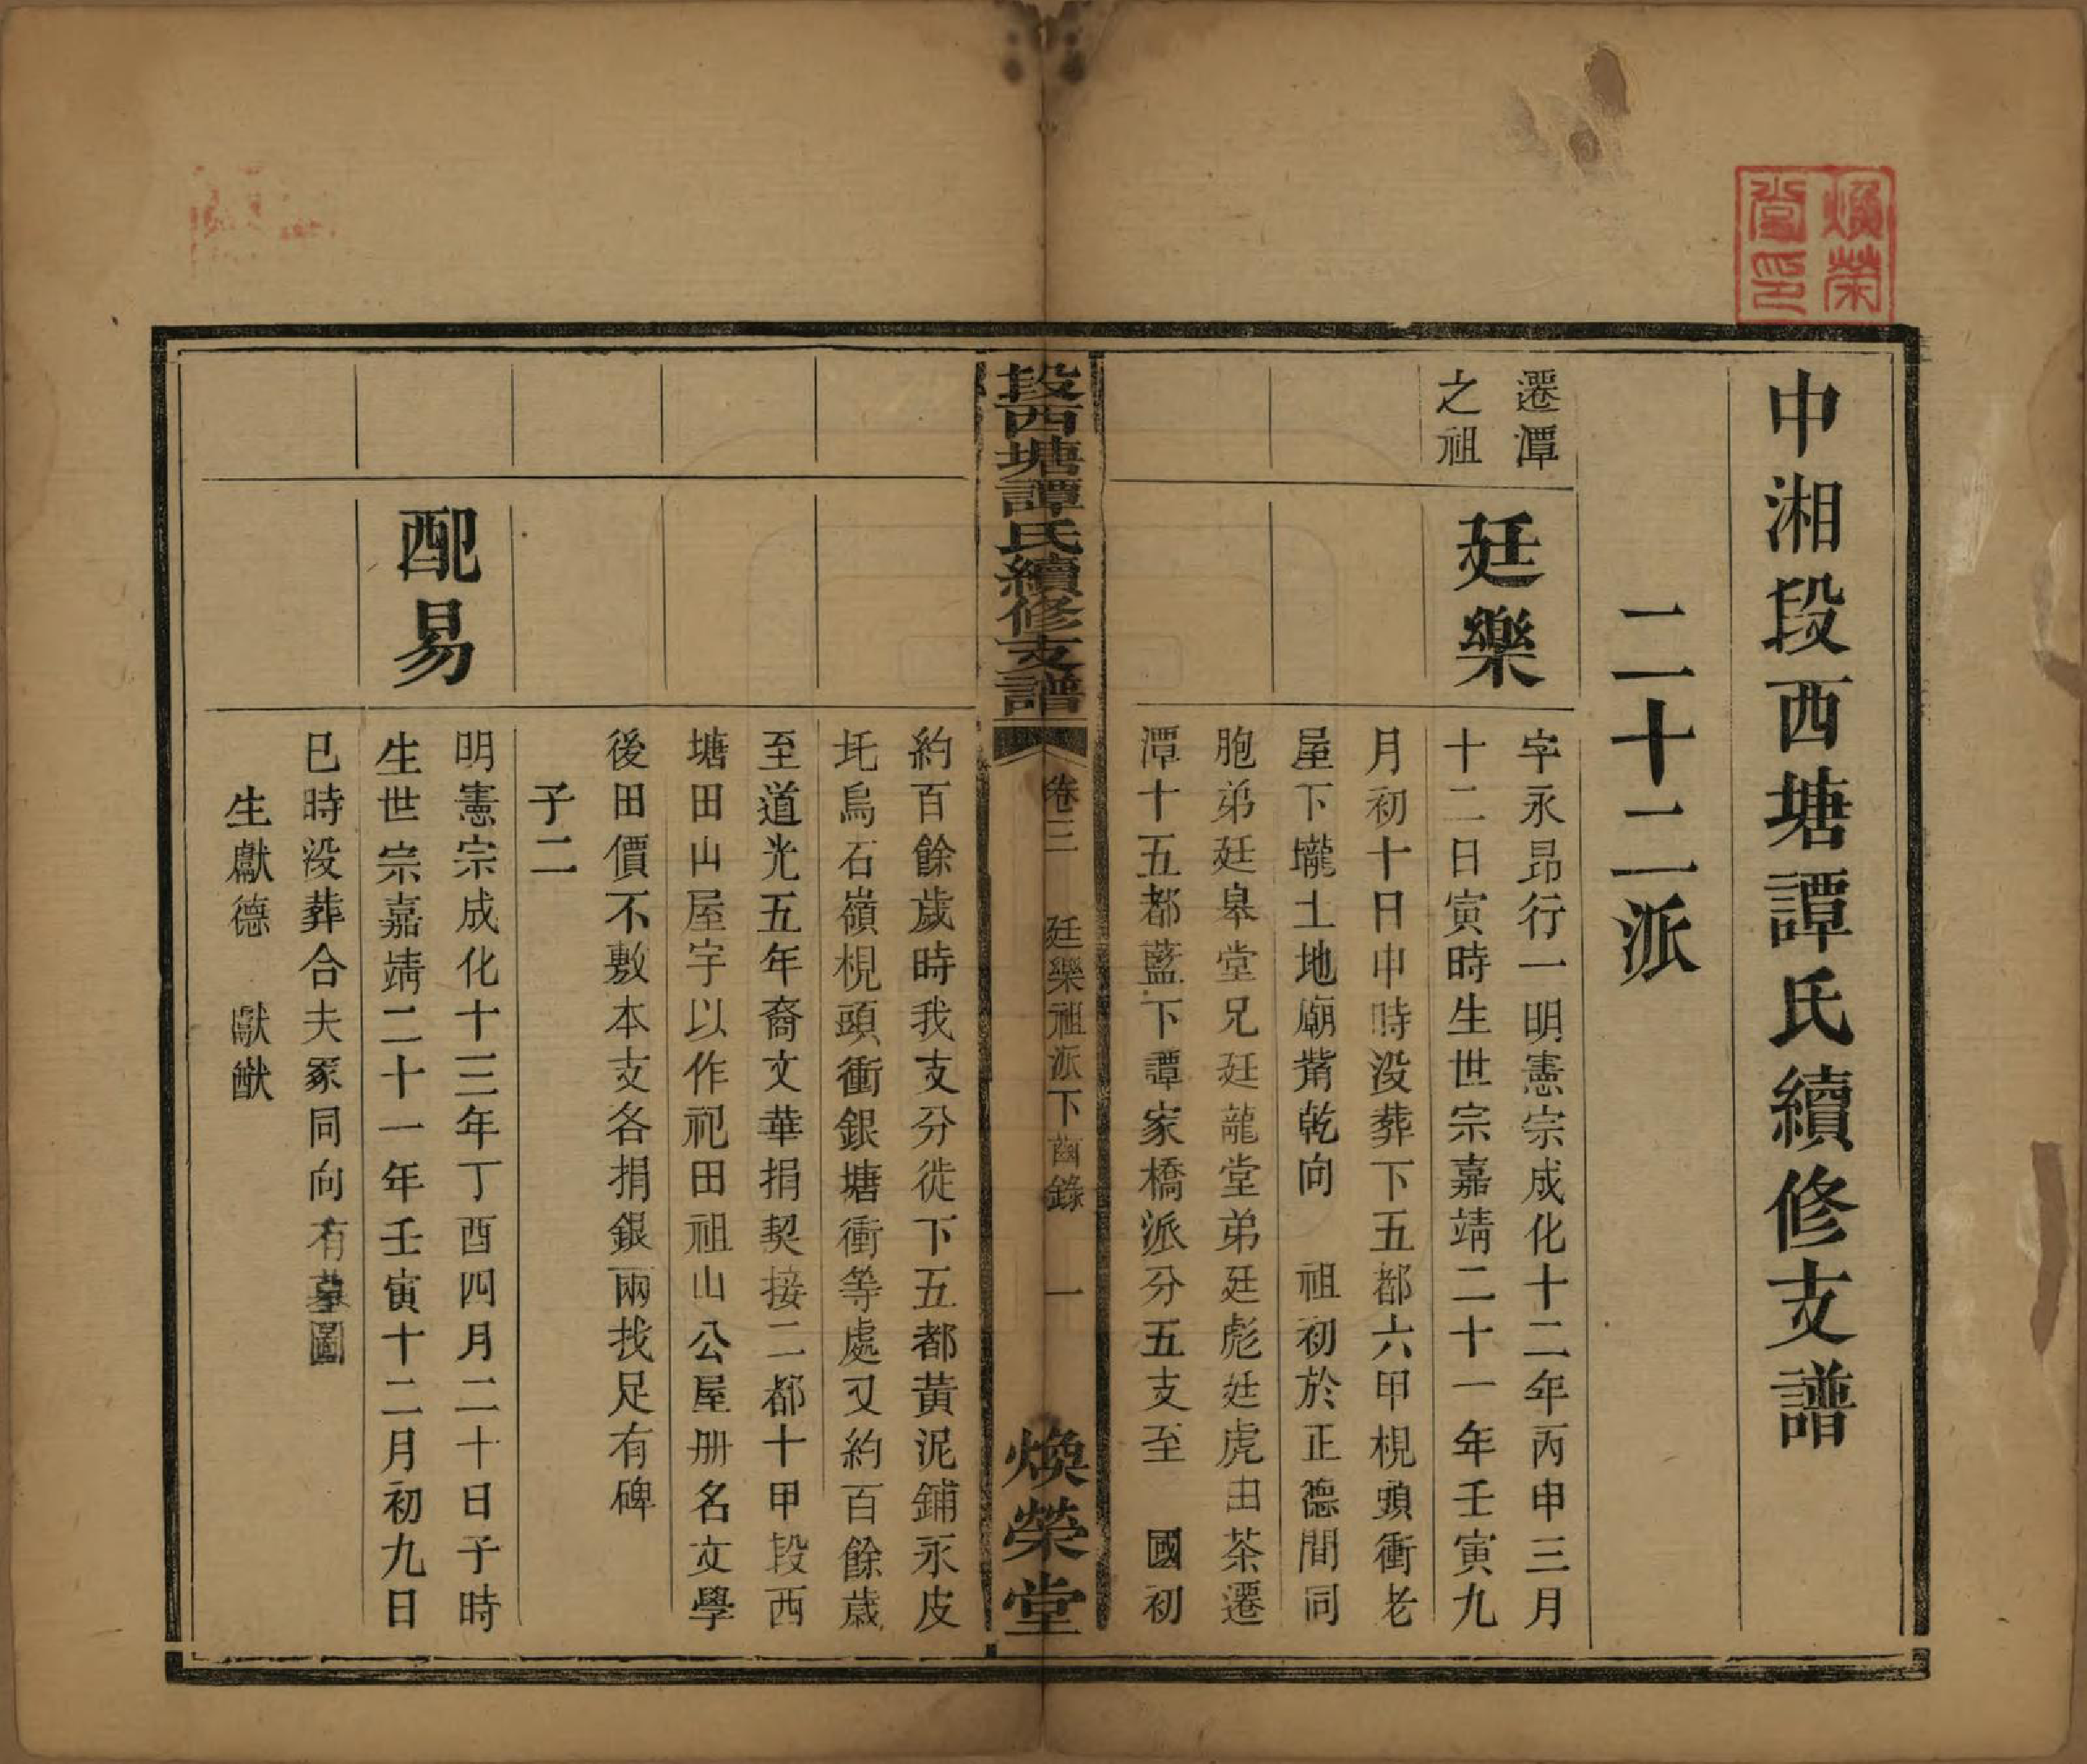 煥榮堂印
中湘段西塘譚氏續修支譜
二十二派
遷潭
之祖
廷樂
字永昂行一明憲宗成化十二年丙申三月
十二日寅時生世宗嘉靖二十一年壬寅九
月初十日申時没葬下五都六甲梘頭衝老
屋下壠土地廟背乾向　祖初於正德間同
胞弟廷皋堂兄廷龍堂弟廷彪廷虎由茶遷
潭十五都藍下譚家橋派分五支至　國初
段西塘譚氏續修支譜
卷三　廷樂祖派下齒錄　一
煥榮堂
約百餘歲時我支分徙下五都黃泥鋪永皮
圫烏石嶺梘頭衝銀塘衝等處又約百餘歲
至道光五年裔文華捐契接二都十甲段西
塘田山屋宇以作祀田祖山公屋册名文學
後田價不敷本支各捐銀兩找足有碑
子二
配易
明憲宗成化十三年丁酉四月二十日子時
生世宗嘉靖二十一年壬寅十二月初九日
巳時没葬合夫冢同向有墓圖
生獻德　獻猷